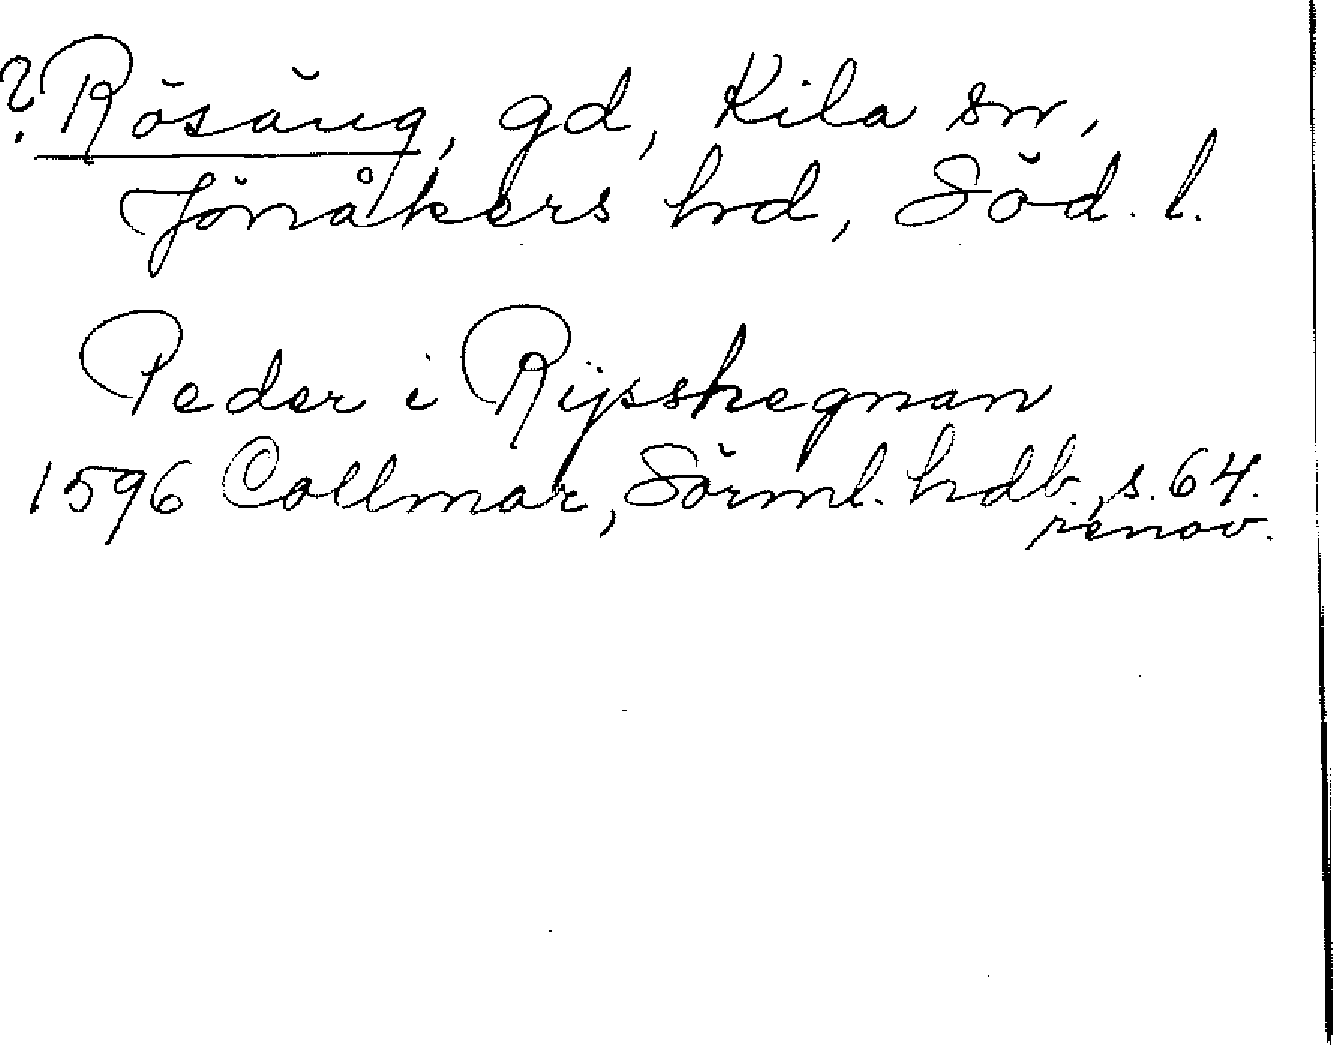 ? Rösäng, gd, Kila sn,
Jönåkers hd, Söd. l.
Peder i Rijsshegnan
1596 Collmar, Sörml. hdb., s. 64.
renov.